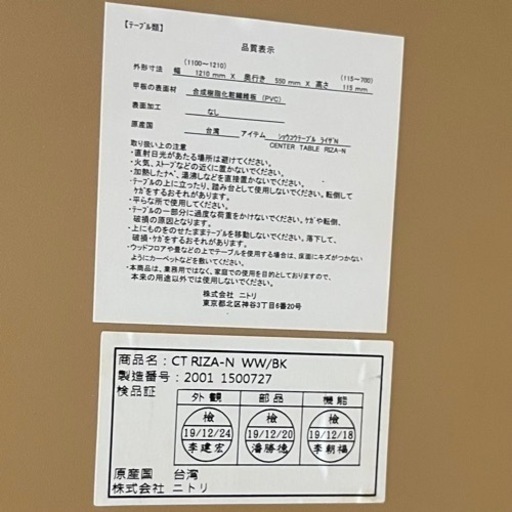 【ﾃｰﾌﾞﾙ類】
品質表示
(1100～1210) (115～700)
外形寸法 幅 1210 mm X 奥行き 550 mm X 高さ 115 mm
甲板の表面材 合成樹脂化粧繊維板 (PVC)
表面加工 なし
原産国 台湾 アイテム ｼｮｳｺｳﾃｰﾌﾞﾙ ﾗｲｻﾞN
CENTER TABLE RIZA-N
取り扱い上の注意
・直射日光があたる場所は避けてください。
・火気、ストーブなどの近くに置かないでください。
・加熱したﾅﾍﾞ、湯沸しなどを直接置かないでください。
・テーブルの上に立ったり、踏み台として使用しないでください。転倒して
ケガをするおそれがあります。
・平らな所で使用してください。
・テーブルの一部分に過度な荷重をかけないでください。ケガや転倒、
破損の原因となります。
・上にものをのせたままテーブルを移動しないでください。落下して、
破損・ケガをするおそれがあります。
・ウッドフロアや畳などの上でテーブルを使用する場合は、床面にキズがつかない
ようにカーペットなどを敷いてください。
・本商品は、業務用ではなく、家庭での使用を目的としておりますので、
本来の用途以外での使用はしないでください。
株式会社 ニトリ
東京都北区神谷3丁目6番20号
商品名：CT RIZA-N WW/BK
製造番号：2001 1500727
検品証
外観 部品 機能
檢 檢 檢
19/12/24 19/12/20 19/12/18
李建宏 潘勝德 李朝福
原産国 台湾
株式会社 ニトリ